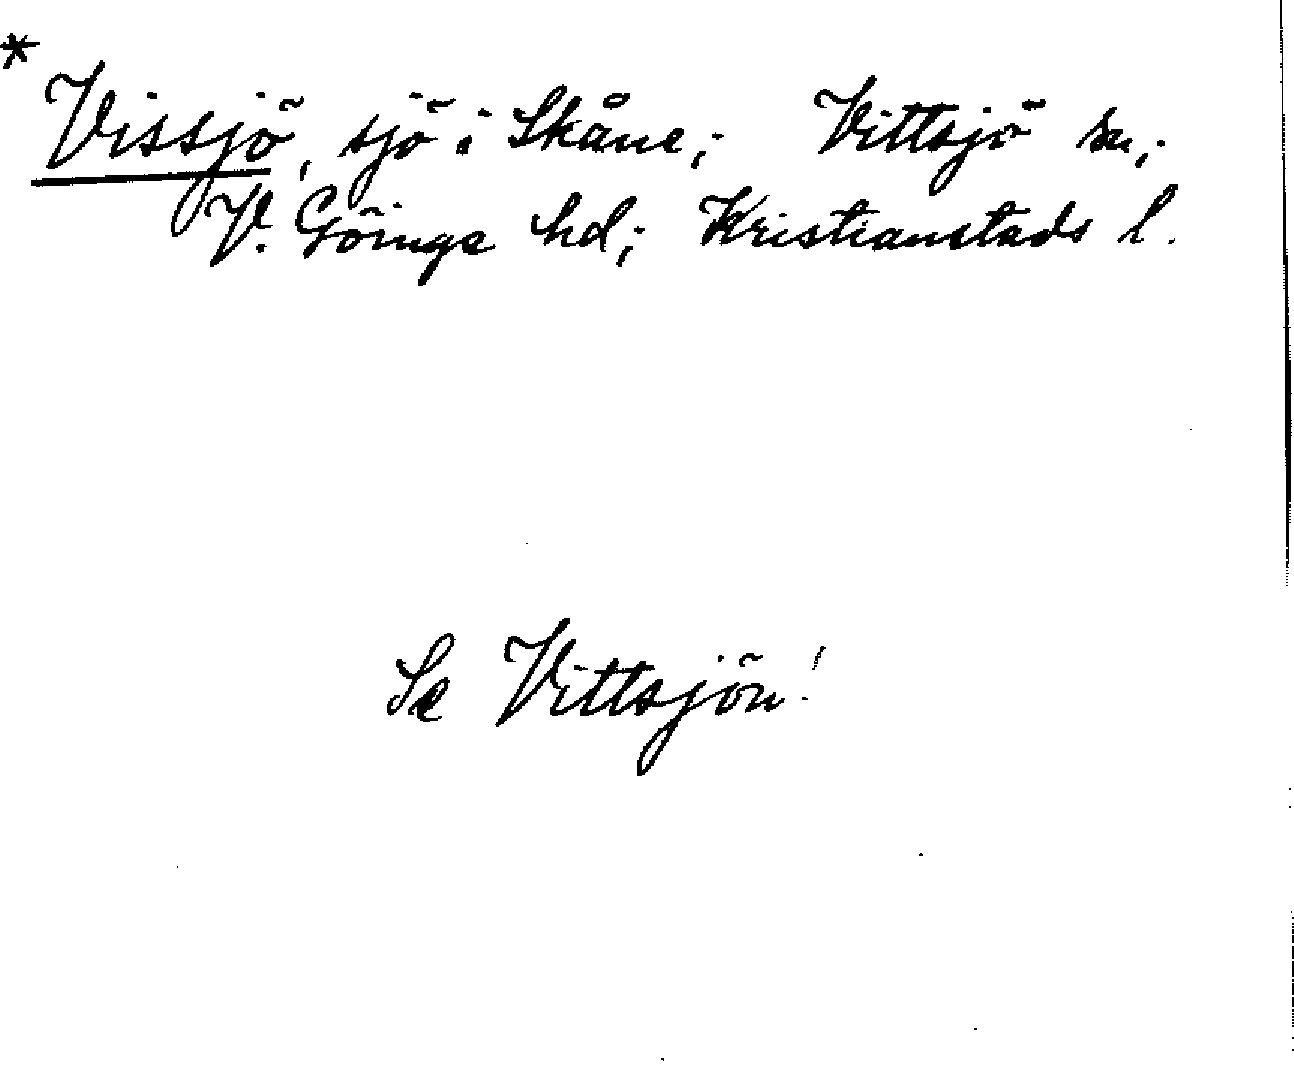 * Vissjö, sjö i Skåne; Vittsjö sn;
V. Göinge hd; Kristianstads l.
Se Vittsjön!